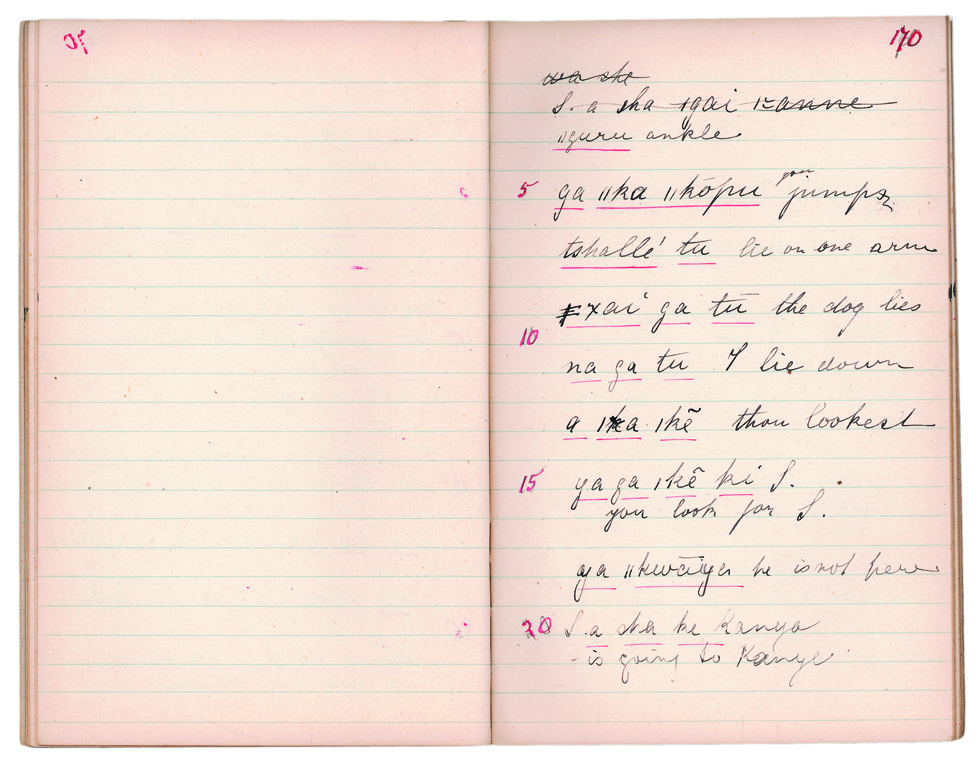 170
wa she
S. a sha ǀgai
ǁguru ankle
5 ga ǁka ǁkōpu you jumps
tshallé tu lie on one arm
ǂxai ga tū the dog lies
10
na ga tu I lie down
a ǀka ǀkẽ thou lookest
15 ya ga ǀkẽ ki S.
you look for S.
ya ǁkwāiya he is not here
20 S. a sha ke Kanya
- is going to Kanye